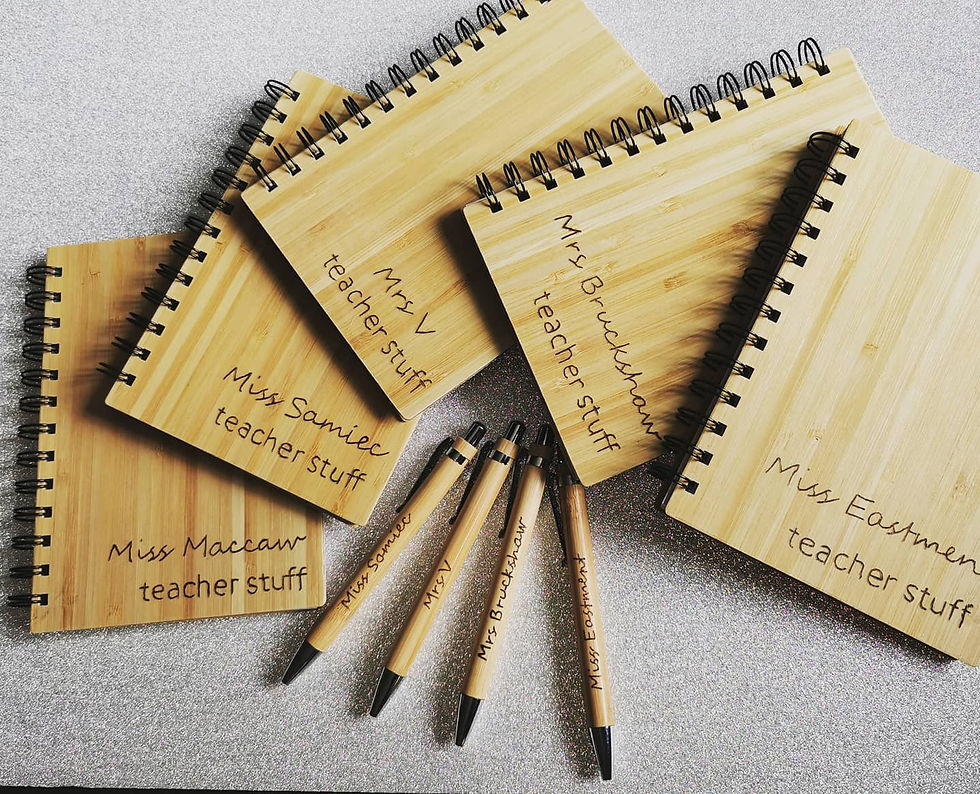 Miss Maccaw
teacher stuff
Miss Samiec
teacher stuff
Mrs V
teacher stuff
Mrs Bruckshaw
teacher stuff
Miss Eastment
teacher stuff
Miss Samiec
Mrs V
Mrs Bruckshaw
Miss Eastment